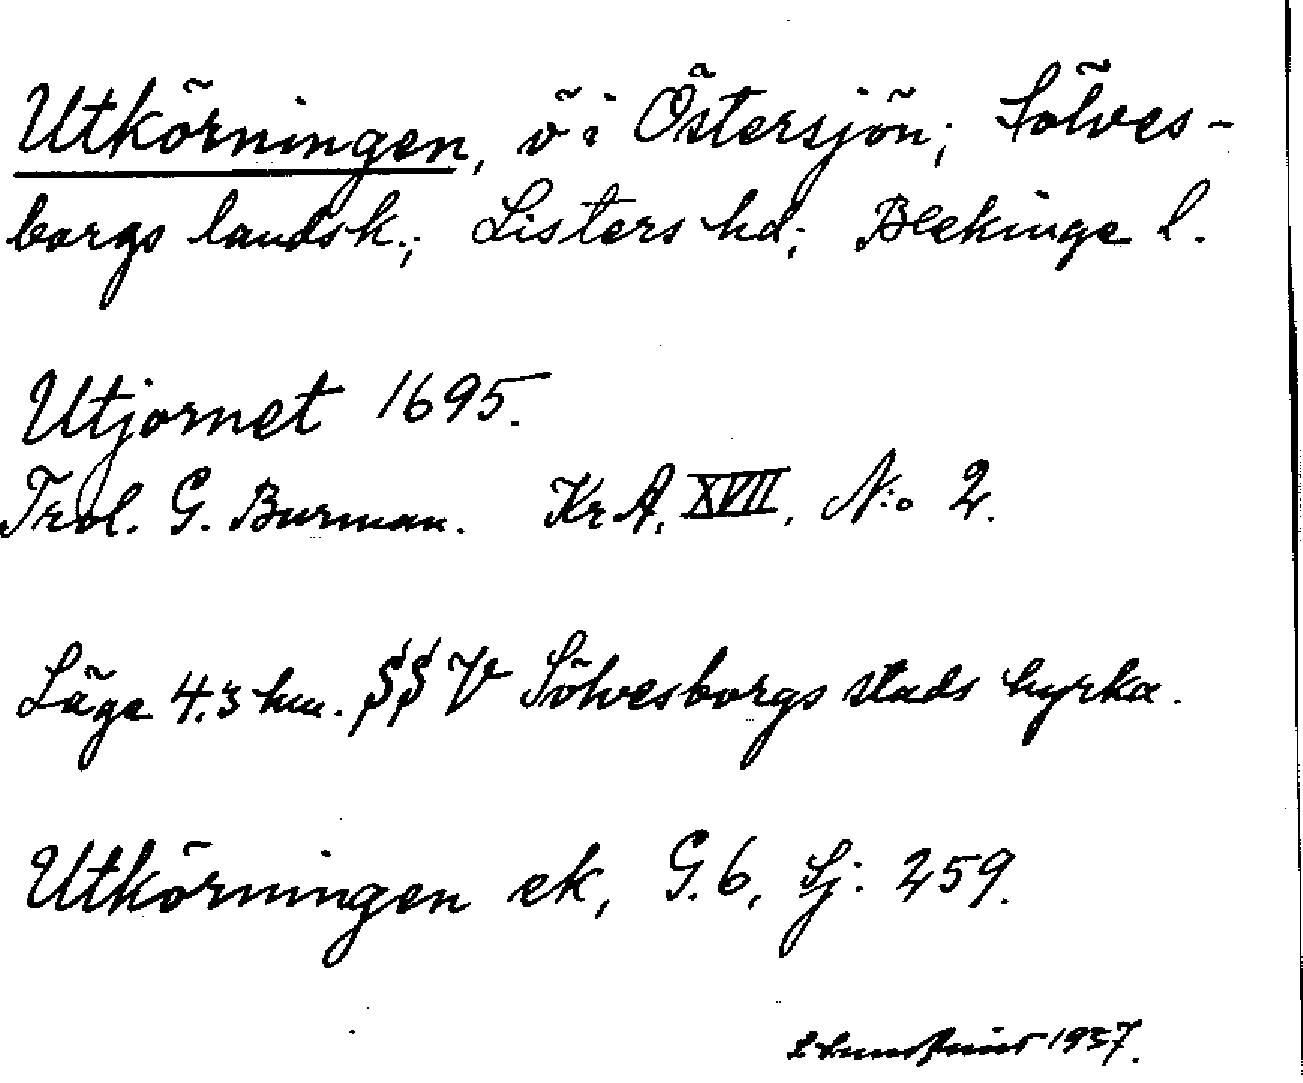 Utkörningen, ö i Östersjön; Sölves-
borgs landsk.; Listers hd; Blekinge l.
Utjornet 1695.
Trol. G. Burman. KrA. XVII. N:o 2.
Läge 4.3 km. SSV Sölvesborgs stads kyrka.
Utkörningen ek, G.6, Sj: 259.
1937.